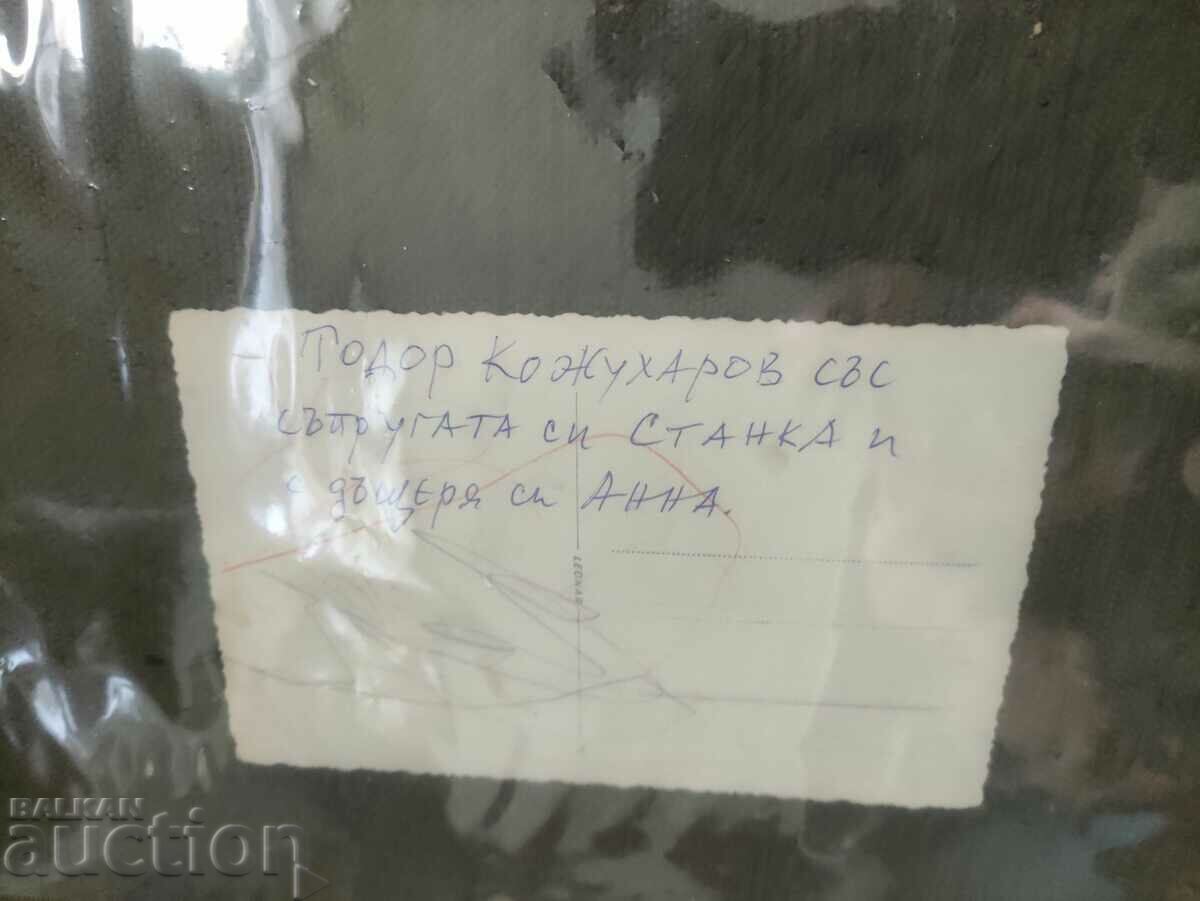 Тодор Кожухаров със
съпругата си Станка и
с дъщеря си Анна.
LEONAR
BALKAN
auction